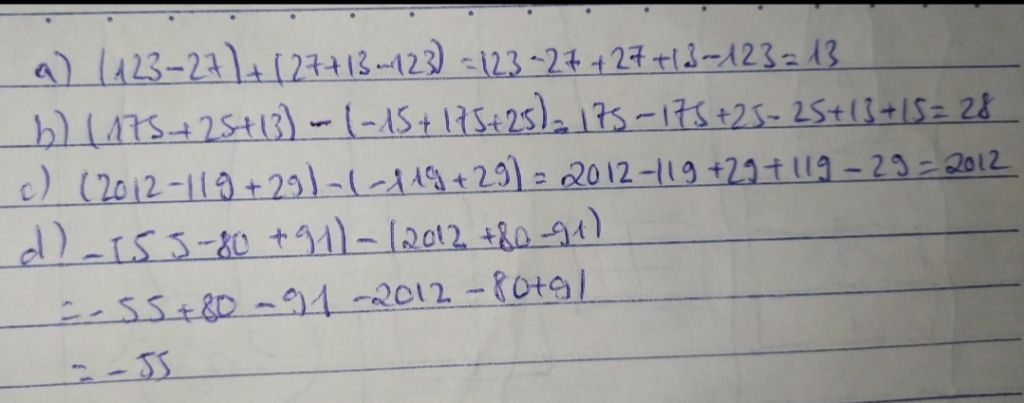 a) (123-27)+(27+13-123) =123-27+27+13-123=13
b) (175+25+13)-(-15+175+25)=175-175+25-25+13+15=28
c) (2012-119+29)-(-119+29)=2012-119+29+119-29=2012
d) -(55-80+91)-(2012+80-91)
=-55+80-91-2012-80+91
=-55